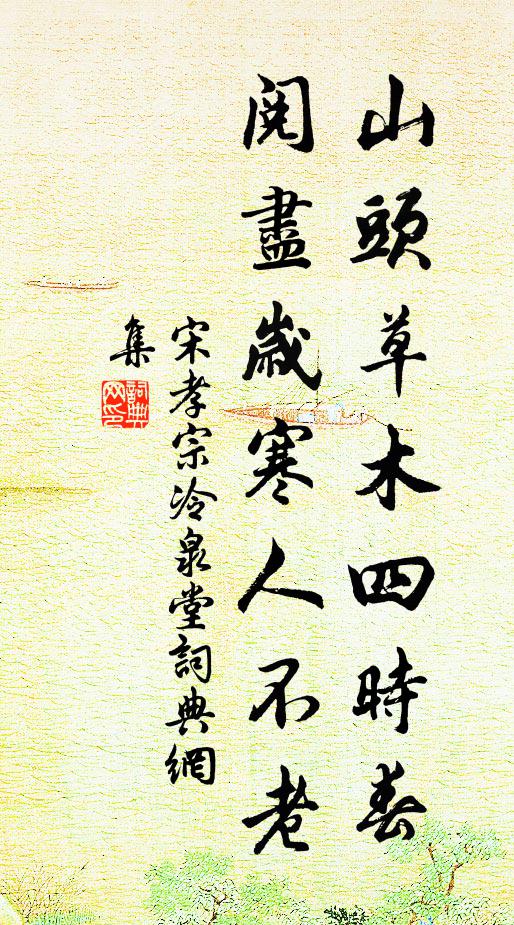 山頭草木四時春
閱盡歲寒人不老
宋孝宗冷泉堂詞典網
集
詞典
网印